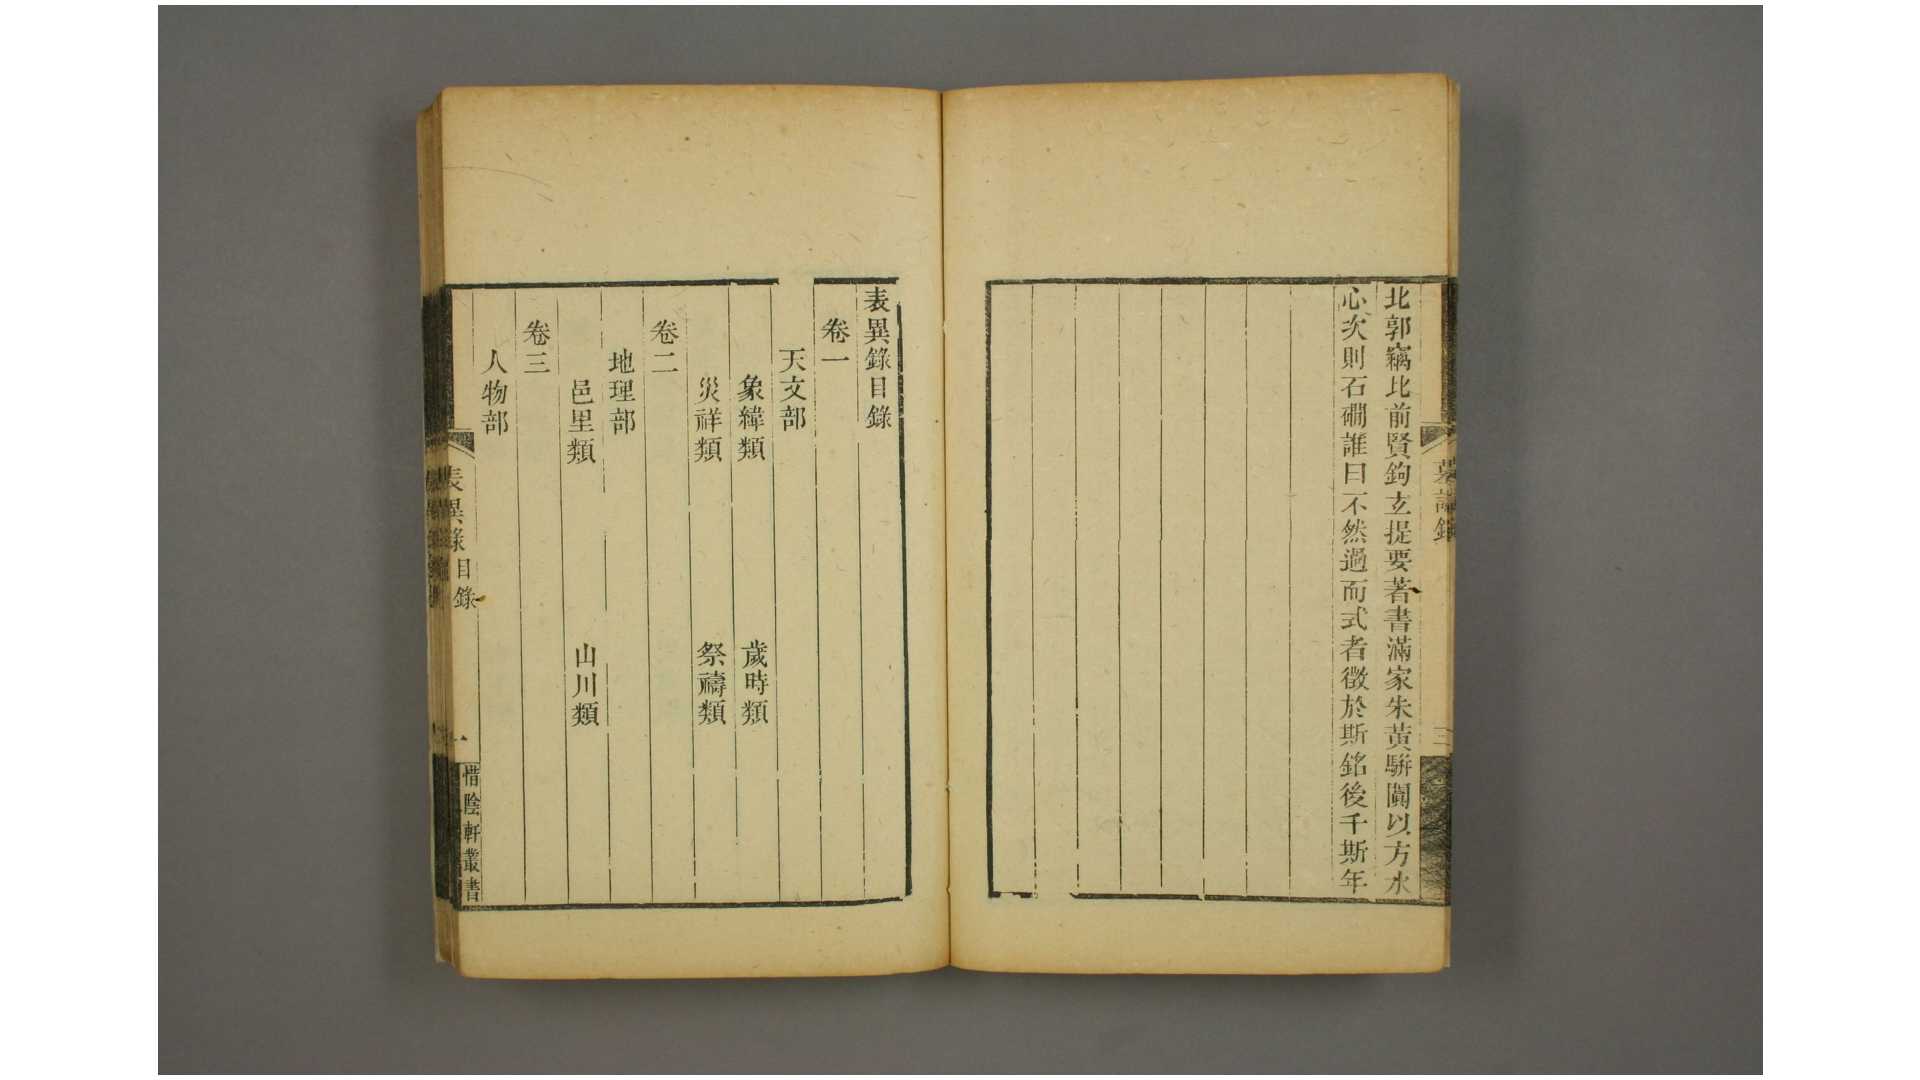 北郭竊比前賢鉤玄提要著書滿家朱黃駢闐以方水
心次則石磵誰曰不然過而式者徵於斯銘後千斯年
墓誌銘
三
表異錄目錄
卷一
天文部
象緯類 歲時類
災祥類 祭禱類
卷二
地理部
邑里類 山川類
卷三
人物部
表異錄 目錄
一
惜陰軒叢書